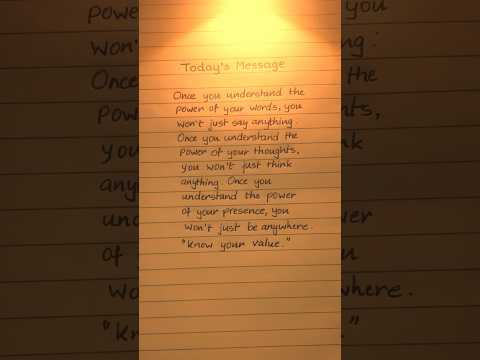 Today's Message
Once you understand the
power of your words, you
won't just say anything.
Once you understand the
power of your thoughts,
you won't just think
anything. Once you
understand the power
of your presence, you
won't just be anywhere.
"know your value."